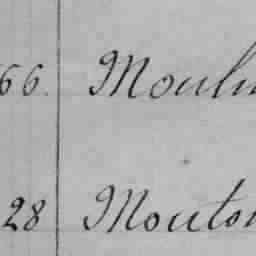 66. Moulin
28 Mouton